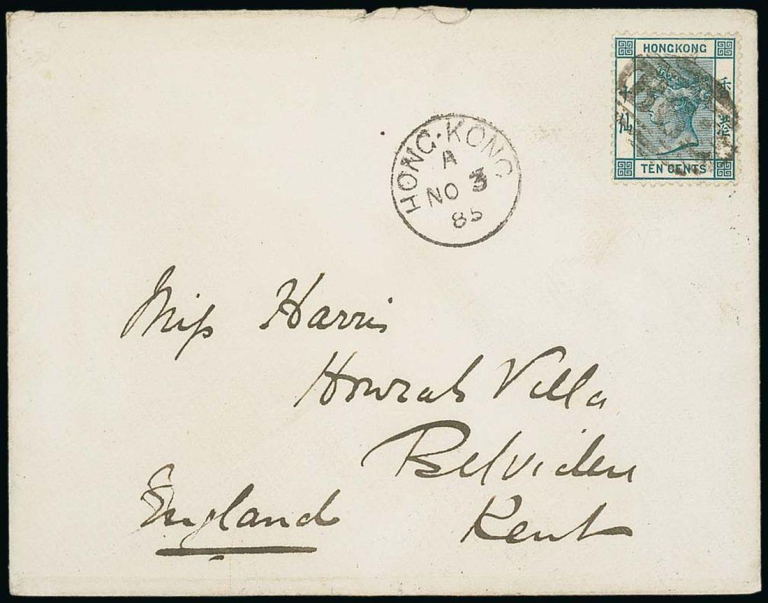 HONGKONG
十仙 士 港香
TEN CENTS
HONG-KONG
A
NO 3
85
Miss Harris
Howrah Villa
Belvidere
Kent
England